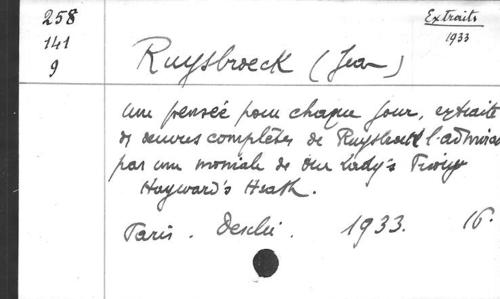 258
141
9
Extraits
1933
Ruysbroeck (Jean)
Une pensée pour chaque jour, extraite
des œuvres complètes de Ruysbroeck l'admirable
par une moniale de Our Lady's Priory
Hayward's Heath.
Paris. Desclée. 1933. 16°.